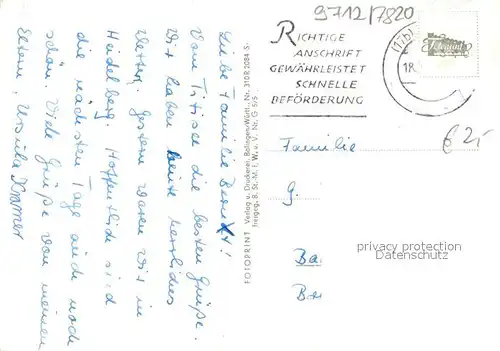 9712/7820
RICHTIGE
ANSCHRIFT
GEWÄHRLEISTET
SCHNELLE
BEFÖRDERUNG
(17b)
18.
€ 2,-
Liebe Familie
Vom Titisee die besten Grüße.
Wir haben heute herrliches
Wetter, gestern waren wir in
Heidelberg. Hoffentlich sind
die nächsten Tage auch noch
schön. Viele Grüße von meinen
Eltern, Ursula Kramer
FOTOPRINT Verlag u. Druckerei, Balingen/Württ., Nr. 310 R 2084 S.
Freigeg. B. St.-M. f. W. u. V. Nr. G 5/5
Familie
G.
Ba
privacy protection
Datenschutz